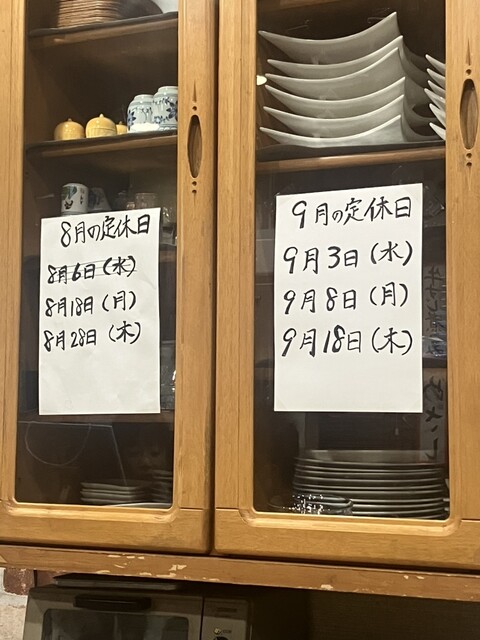 8月の定休日
8月6日(水)
8月18日(月)
8月28日(木)
9月の定休日
9月3日(水)
9月8日(月)
9月18日(木)